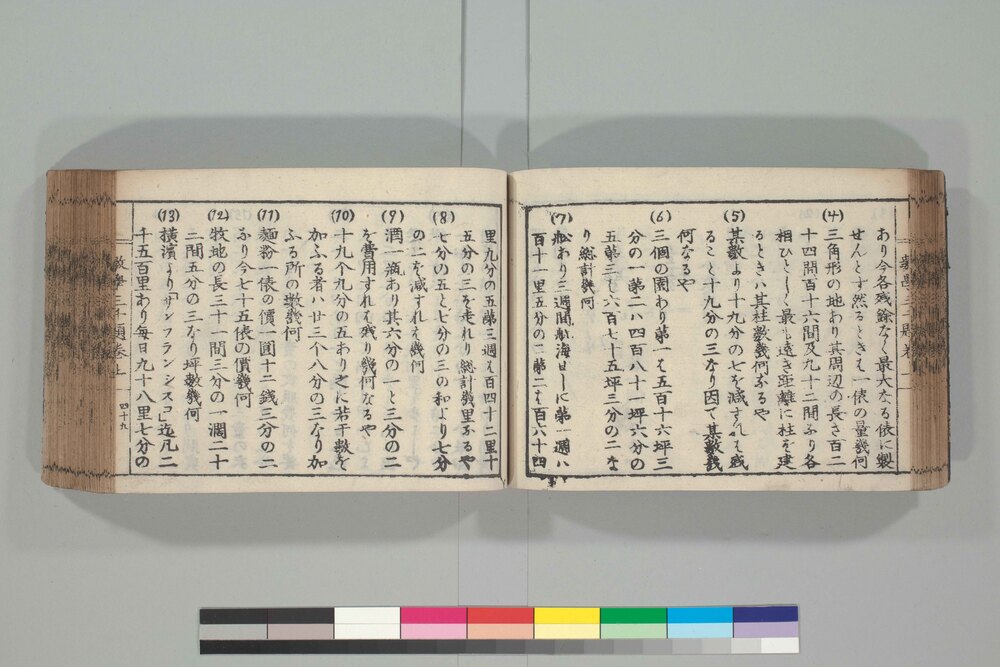 あり今各残餘なく最大なる俵に製
せんとす然るときは一俵の量幾何
(4) 三角形の地あり其周辺の長さ百二
十四間百十六間及九十二間ふり各
相ひとしく最も遠き距離に柱を建
るときハ其柱数幾何ふるや
(5) 某数より十九分の七を減すれは残
ること十九分の三なり因て某数幾
何なるや
(6) 三個の園あり第一は五百十六坪三
分の一第二ハ四百八十一坪六分の
五第三ハ六百七十五坪三分の二な
り総計幾何
(7) 舩あり三週間航海せしに第一週ハ
百十一里五分の二第二は百六十四
里九分の五第三週は百四十二里十
五分の三を走れり総計幾里ふるや
(8) 七分の五と七分の三の和より七分
の二を減すれは幾何
(9) 酒一瓶あり其六分の一と三分の二
を費用すれは残り幾何なるや
(10) 十九个九分の五あり之に若干数を
加ふる者ハ廿三个八分の三なり加
ふる所の数幾何
(11) 麺粉一俵の價一圓十二錢三分の二
ふり今七十五俵の價幾何
(12) 牧地の長三十一間三分の一濶二十
二間五分の三なり坪数幾何
(13) 横濱より「サンフランシスコ」迄凡二
千五百里あり毎日九十八里七分の
四十九